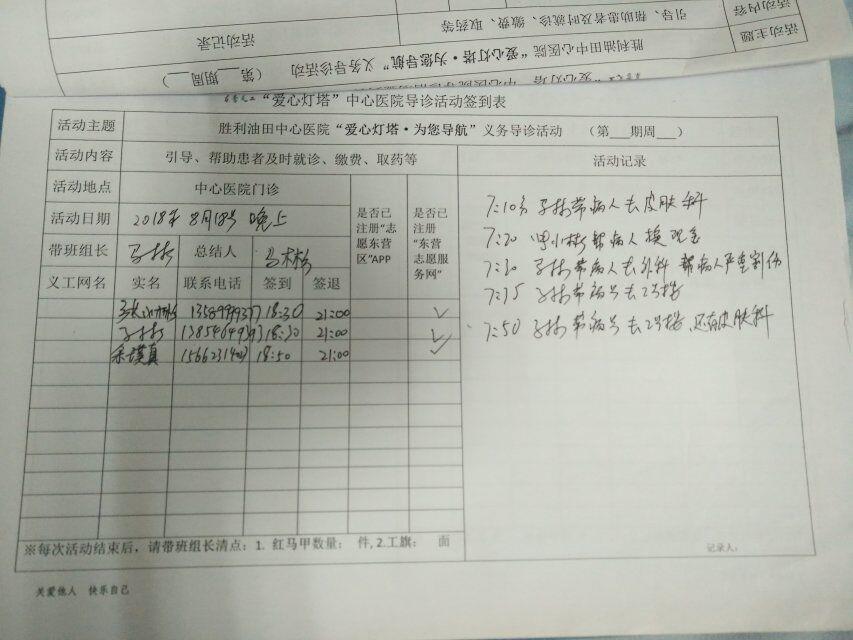 活动主题
胜利油田中心医院"爱心灯塔·为您导航"义务导诊活动 (第___期周___)
活动内容
引导、帮助患者及时就诊、缴费、取药等
活动记录
"爱心灯塔"中心医院导诊活动签到表
活动主题 胜利油田中心医院"爱心灯塔·为您导航"义务导诊活动 (第___期周___)
活动内容 引导、帮助患者及时就诊、缴费、取药等 活动记录
活动地点 中心医院门诊
是否已注册"志愿东营区"APP
是否已注册"东营志愿服务网"
活动日期 2018年8月18号 晚上
带班组长 总结人
义工网名 实名 联系电话 签到 签退
18:30 21:00 ✓
18:30 21:00 ✓
18:50 21:00 ✓
7:10分 带病人去皮肤科
7:20 帮病人换现金
7:30 带病人去外科 帮病人严重割伤
7:35 带病号去2号楼
7:50 带病号去2号楼、还有皮肤科
※每次活动结束后,请带班组长清点:1. 红马甲数量: 件,2.工旗: 面
记录人:
关爱他人 快乐自己